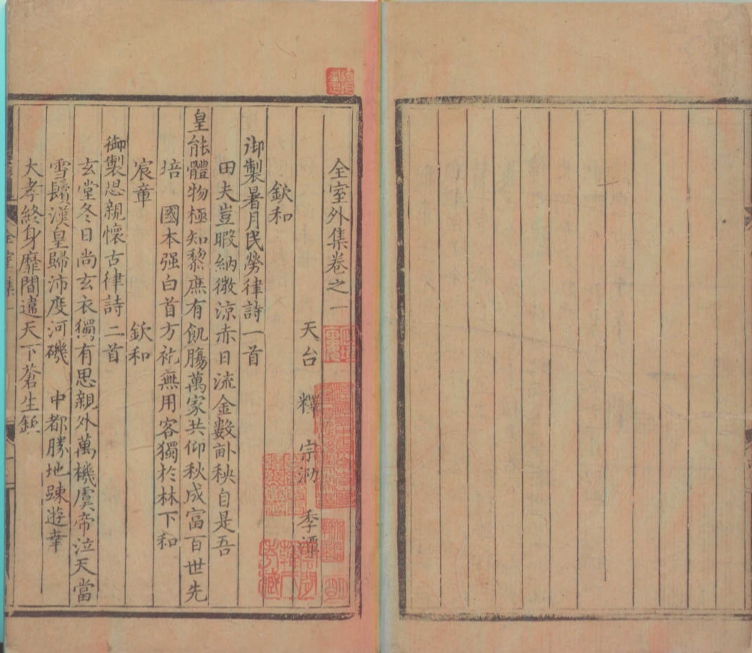 全室外集卷之一
天台 釋 宗泐 季潭
欽和
御製暑月民勞律詩一首
田夫豈暇納微涼赤日流金數畝秧自是吾
皇能體物極知黎庶有飢腸萬家共仰秋成富百世先
培 國本强白首方袍無用客獨於林下和
宸章 欽和
御製思親懷古律詩二首
玄堂冬日尚玄衣獨有思親外萬機虞帝泣天當
雪鬢漢皇歸沛度河磯 中都勝地踈遊幸
大孝終身靡間違天下蒼生
全室集一